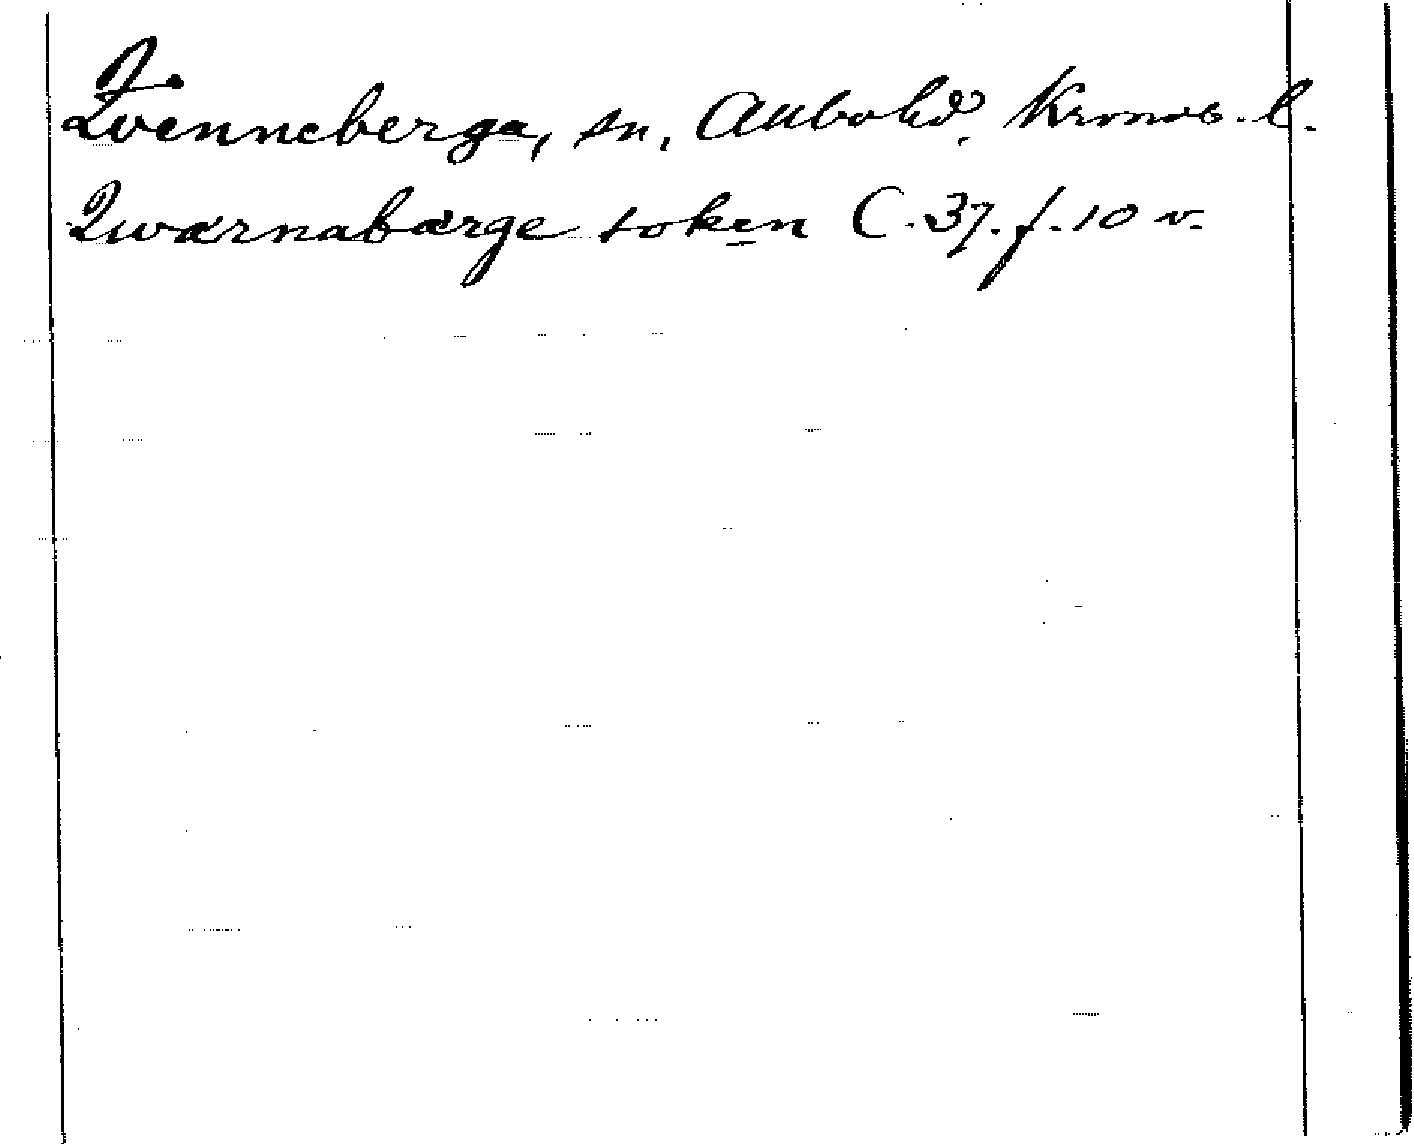 Qvenneberga, sn, Allbo hd, Kronob. l.
Qwærnabærge soken C. 37. f. 10 v.